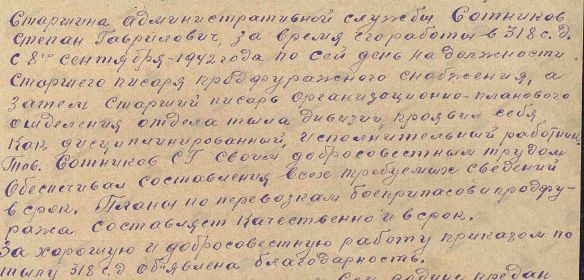 Старшина административной службы Сотников
Степан Гаврилович, за время его работы в 318 с.д.
с 8го сентября-1942 года по сей день на должности
Старшего писаря продфуражного снабжения, а
затем старший писарь организационно-планового
отделения отдела тыла дивизии проявил себя
как дисциплинированный, исполнительный работник
Тов. Сотников С Г своим добросовестным трудом
Обеспечивал составления всех требуемых сведений
в срок. Планы по перевозкам боеприпасов и продфу-
ража составляет качественно и в срок.
За хорошую и добросовестную работу приказом по
тылу 318 с д об'явлена благодарность.
предан